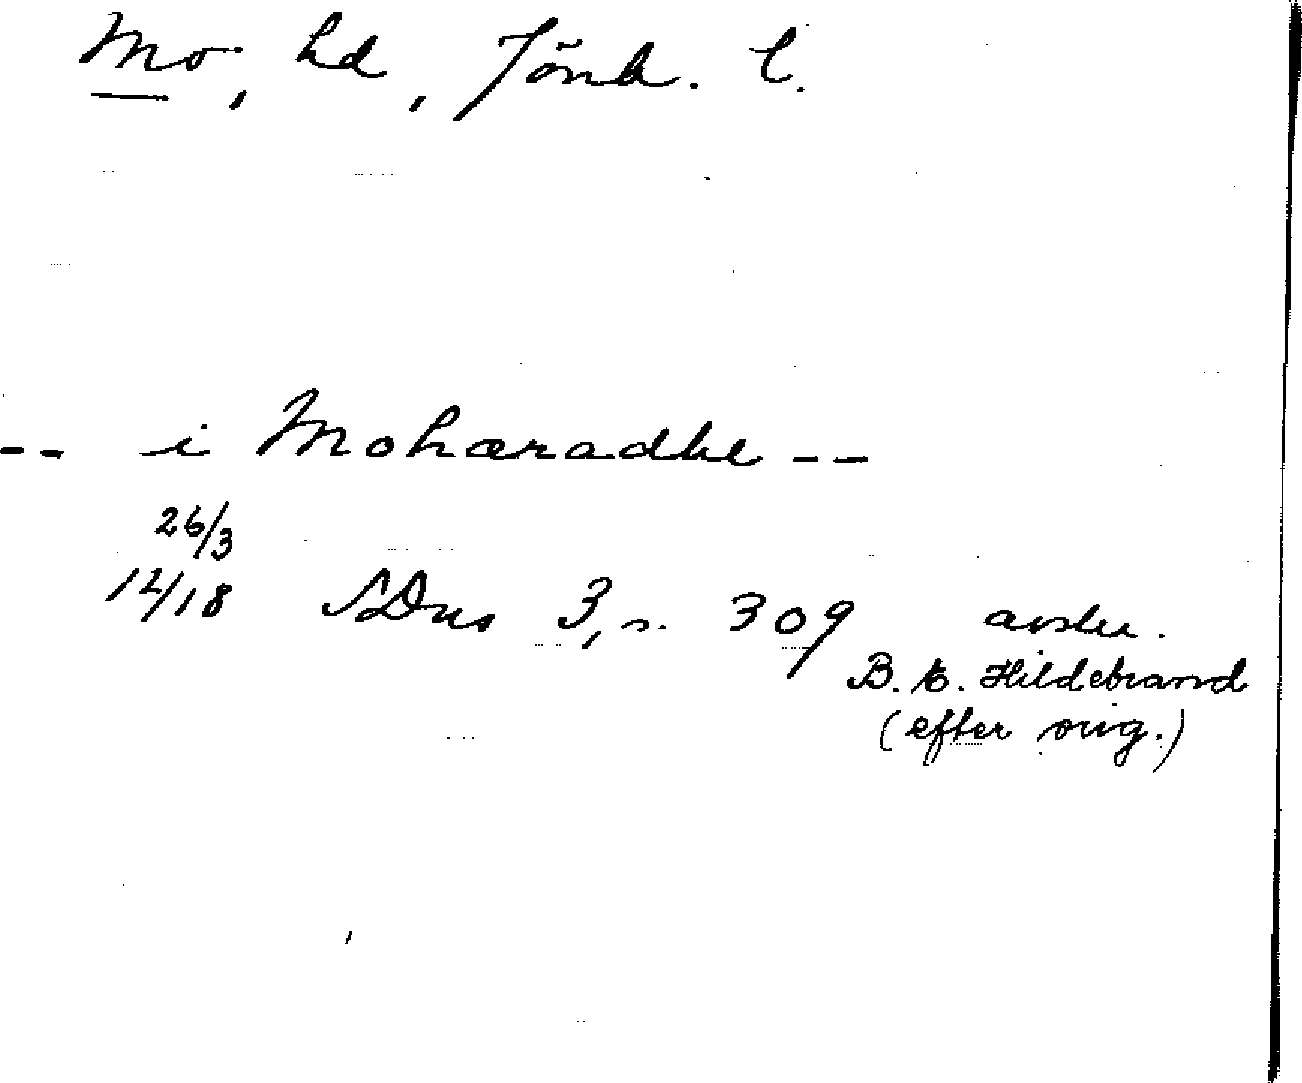 Mo, hd, Jönk. l.
-- i Mohæradhe --
26/3
14/18 SDns 3, s. 309 avskr.
B. E. Hildebrand
(efter orig.)